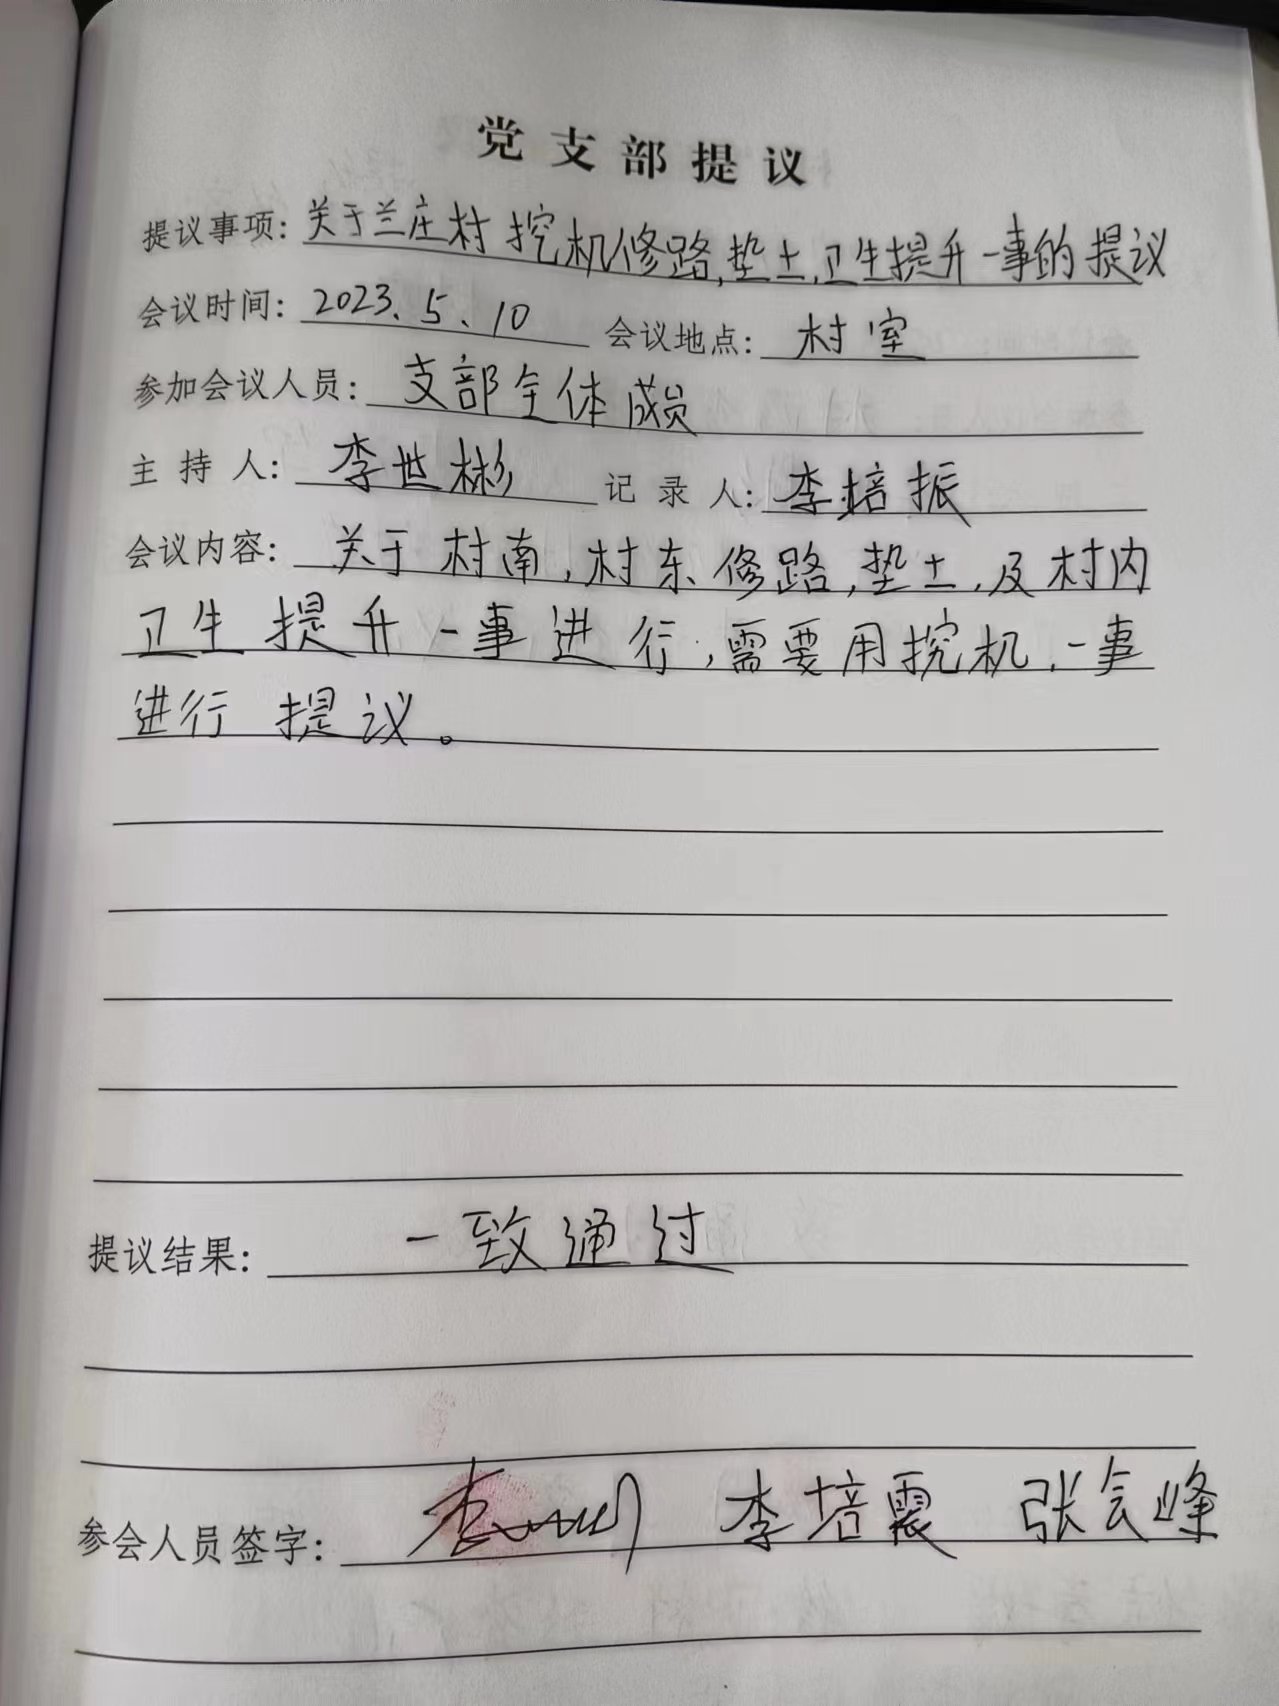 党支部提议
提议事项：关于兰庄村挖机修路,垫土,卫生提升一事的提议
会议时间：2023.5.10 会议地点：村室
参加会议人员：支部全体成员
主持人：李世彬 记录人：李培振
会议内容：关于村南,村东修路,垫土,及村内
卫生提升一事进行,需要用挖机,一事
进行提议。
提议结果：一致通过
参会人员签字：李 李培震 张会峰